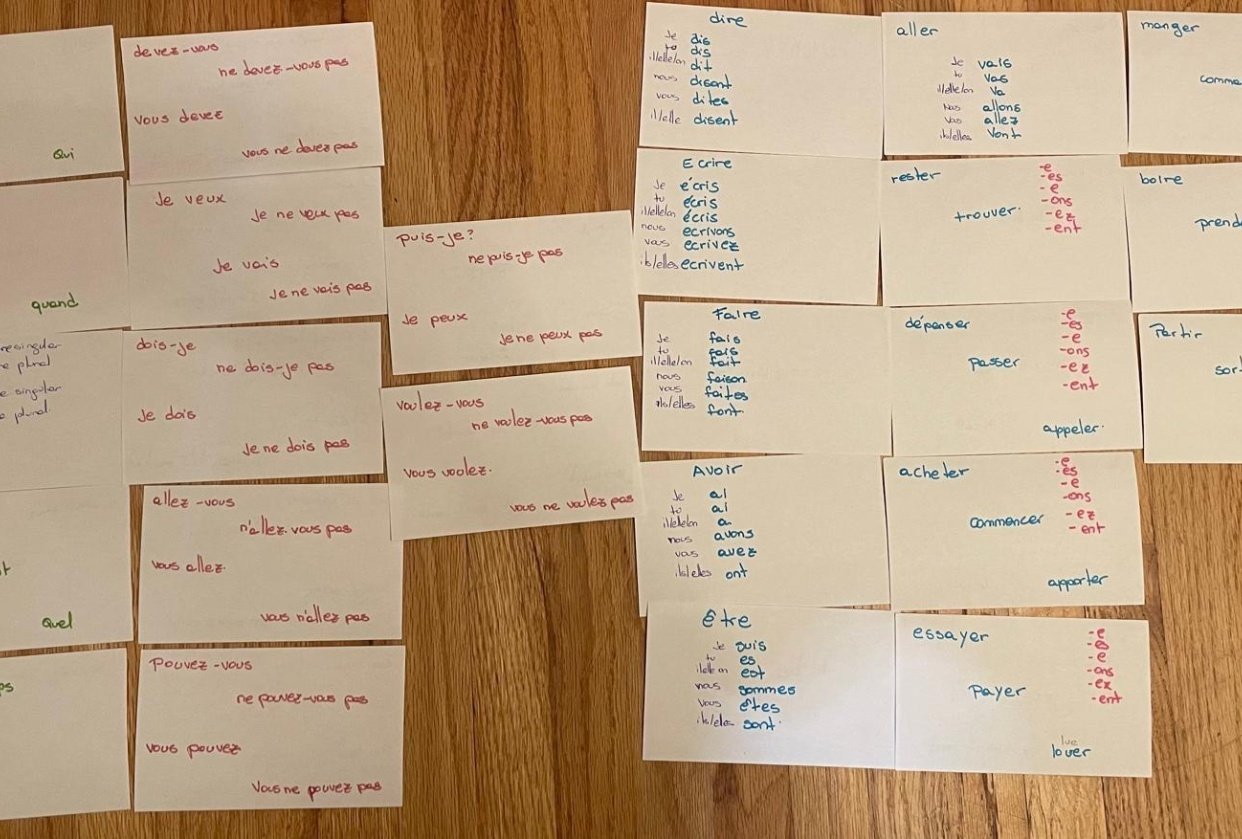 Qui
quand
Quel
devez-vous
ne devez-vous pas
vous devez
vous ne devez pas
Je veux
Je ne veux pas
Je vais
Je ne vais pas
dois-je
ne dois-je pas
Je dois
Je ne dois pas
allez-vous
n'allez-vous pas
vous allez.
vous n'allez pas
Pouvez-vous
ne pouvez-vous pas
vous pouvez
Vous ne pouvez pas
puis-je?
ne puis-je pas
Je peux
Je ne peux pas
voulez-vous
ne voulez-vous pas
vous voulez.
vous ne voulez pas
dire
Je dis
tu dis
il/elle/on dit
nous disent
vous dites
il/elle disent
Ecrire
Je écris
tu écris
il/elle/on écris
nous ecrivons
vous ecrivez
ils/elles ecrivent
Faire
Je fais
tu fais
il/elle/on fait
nous faison
vous faites
ils/elles font
Avoir
Je ai
tu ai
il/elle/on a
nous avons
vous avez
ils/elles ont
être
Je suis
tu es
il/elle on est
nous sommes
vous êtes
sont
aller
Je vais
tu vas
il/elle/on va
allons
allez
ils/elles vont
rester
trouver.
-e
-es
-e
-ons
-ez
-ent
dépenser
passer
appeler.
-e
-es
-e
-ons
-ez
-ent
acheter
commencer
apporter
-e
-es
-e
-ons
-ez
-ent
essayer
payer
louer
-e
-es
-e
-ons
-ez
-ent
manger
comme
boire
prend
Partir
sor